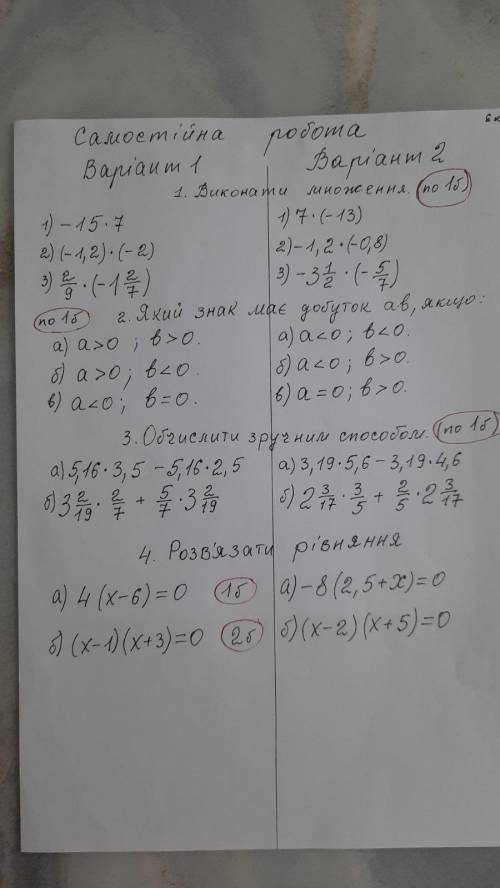 6 к
Самостійна робота
Варіант 1 Варіант 2
1. Виконати множення. (по 1б)
1) -15·7 1) 7·(-13)
2) (-1,2)·(-2) 2) -1,2·(-0,8)
3) 2/9·(-1 2/7) 3) -3 1/2·(-5/7)
(по 1б) 2. Який знак має добуток ав, якщо:
а) а>0; в>0. а) а<0; в<0.
б) а>0; в<0. б) а<0; в>0.
в) а<0; в=0. в) а=0; в>0.
3. Обчислити зручним способом. (по 1б)
а) 5,16·3,5-5,16·2,5 а) 3,19·5,6-3,19·4,6
б) 3 2/19·2/7+5/7·3 2/19 б) 2 3/17·3/5+2/5·2 3/17
4. Розв'язати рівняння
а) 4(х-6)=0 1б а) -8(2,5+х)=0
б) (х-1)(х+3)=0 2б б) (х-2)(х+5)=0